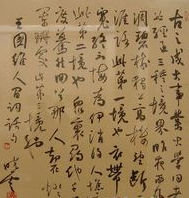 古之成大事業大學問者
必經過三種之境界昨夜西風
凋碧樹獨上高樓望斷天
涯路此第一境也衣帶漸
寬終不悔為伊消得人憔悴
此第二境也眾里尋他千百
度驀然回首那人却在燈
火闌珊處此第三境也
王國維人間詞話句